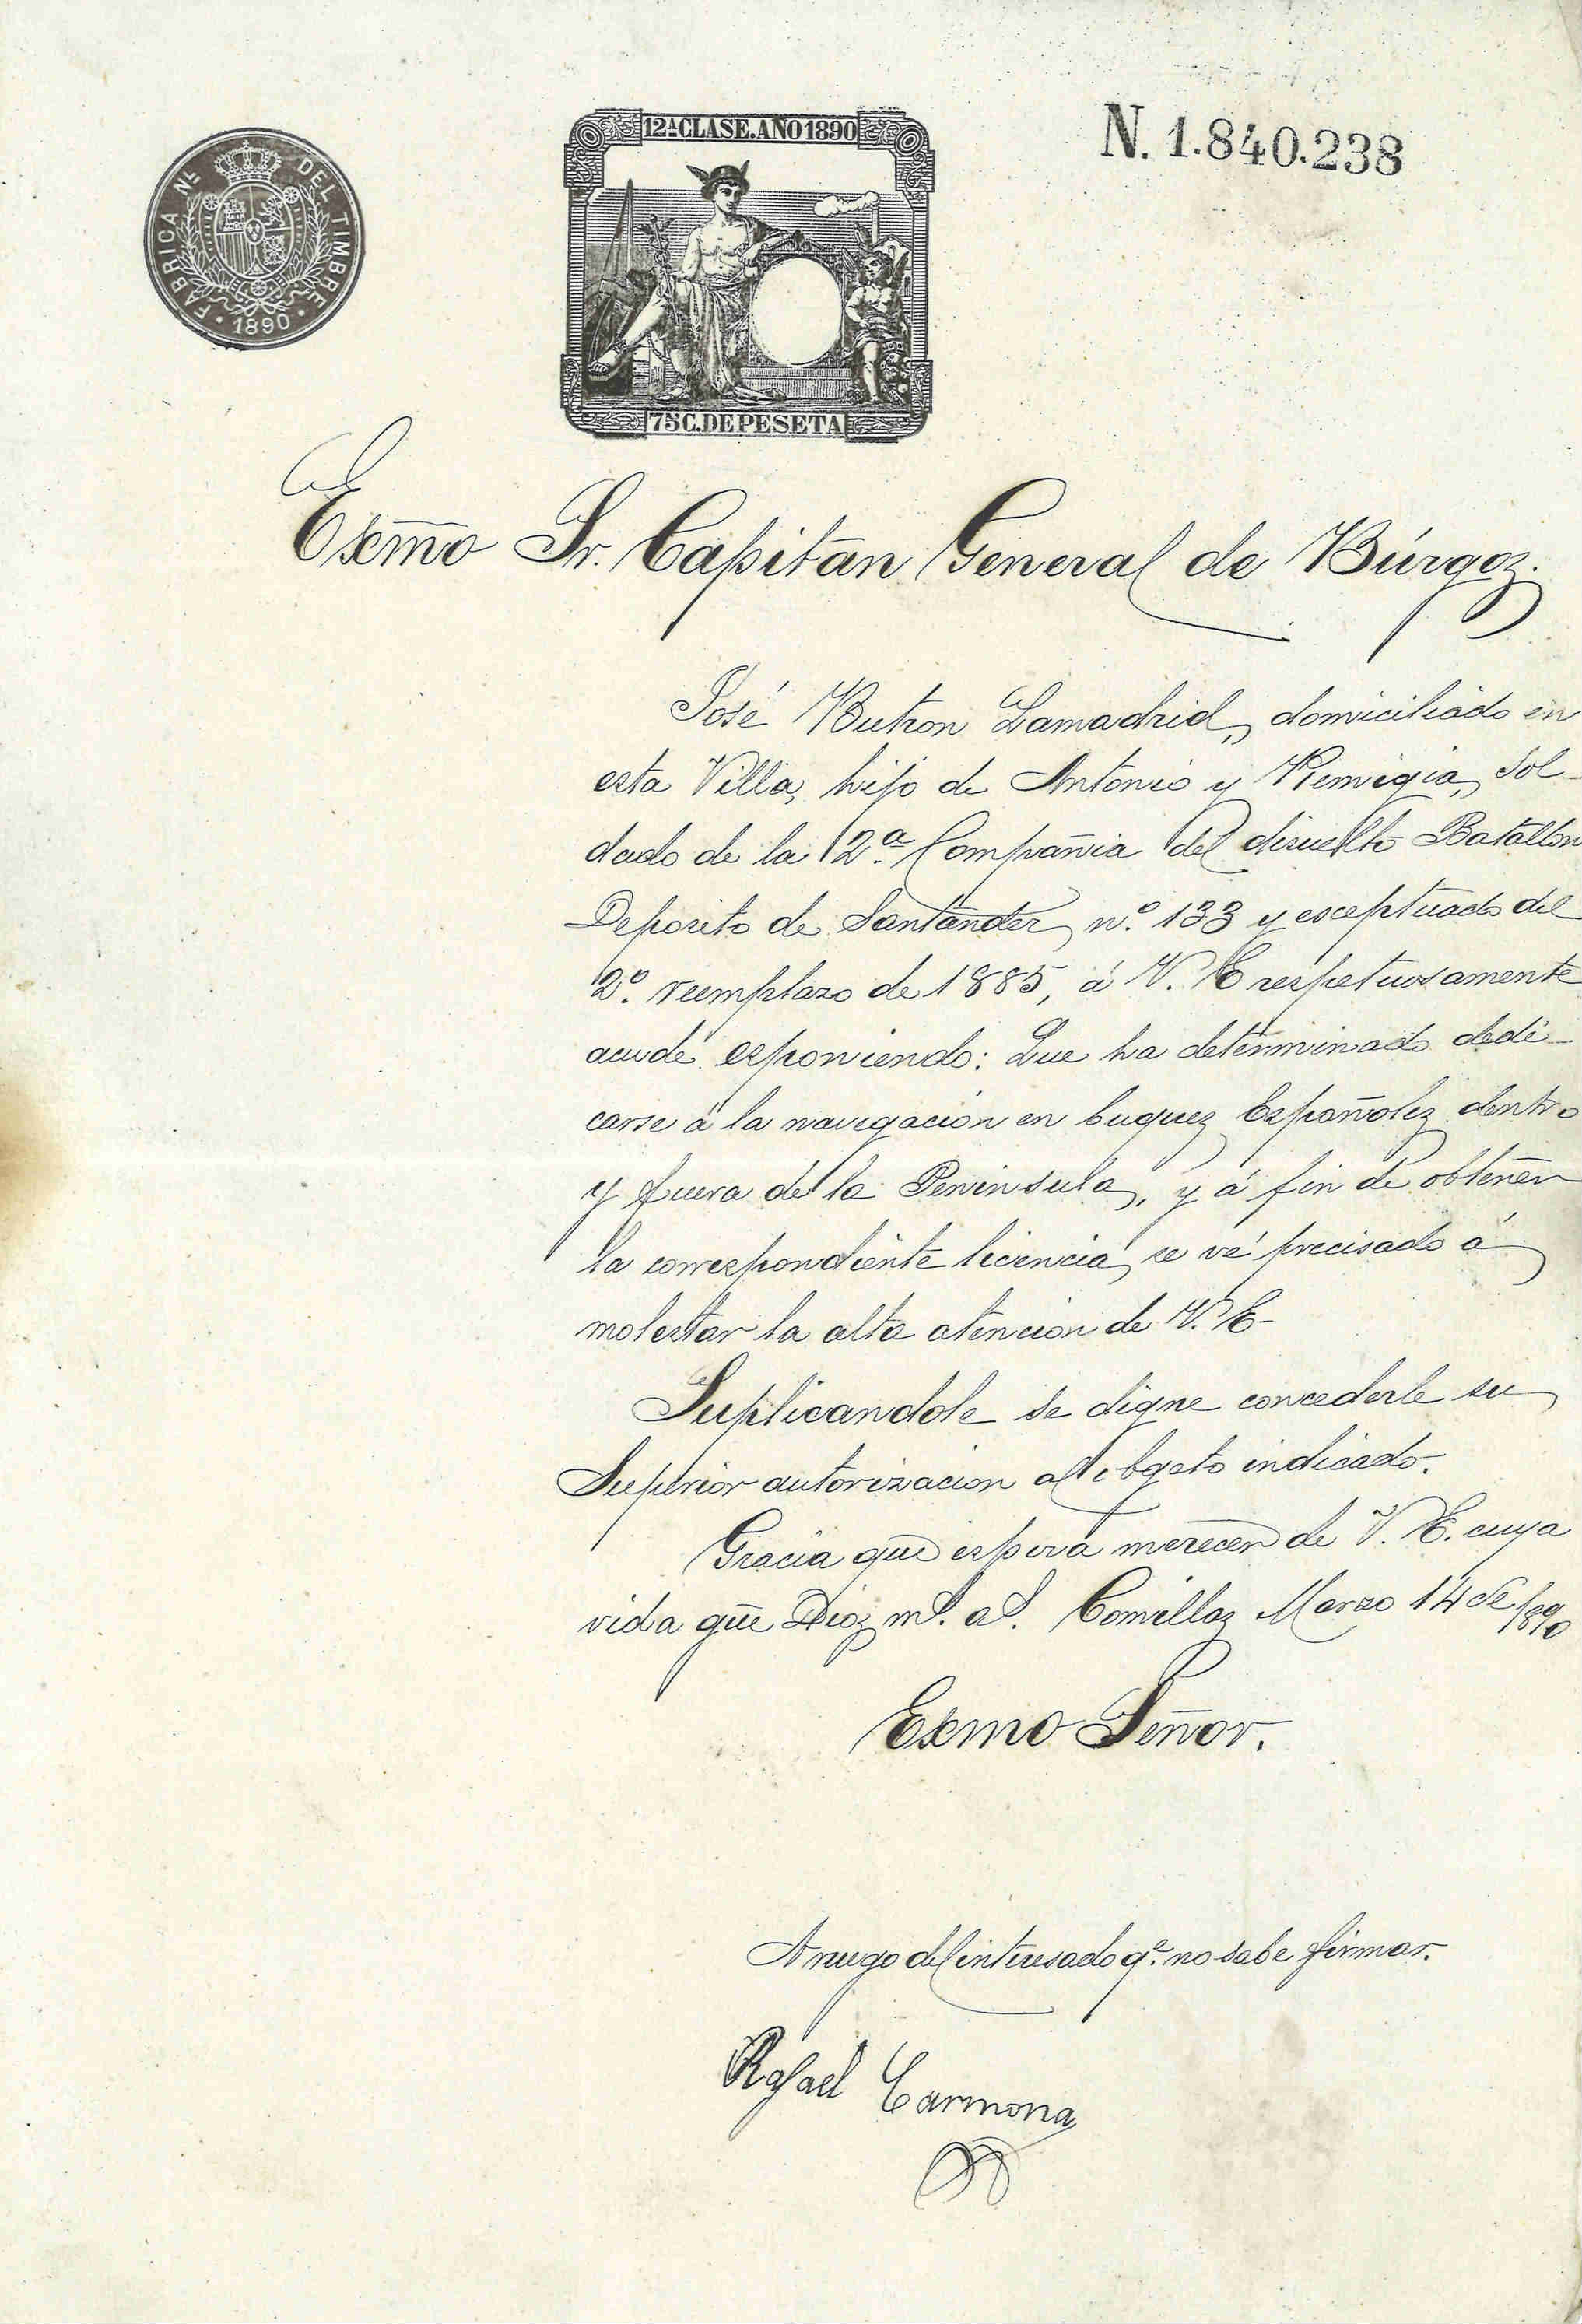 FABRICA NL. DEL TIMBRE
1890
12ª CLASE. AÑO 1890
75 C. DE PESETA
N. 1.840.238
Exmo Sr. Capitan General de Búrgos.
José Butron Lamadrid, domiciliado en
esta Villa, hijo de Antonio y Remigia, sol-
dado de la 2.ª Compañia del disuelto Batallon
Deposito de Santander, n.º 133 y esceptuado del
2.º reemplazo de 1885, á V. E respetuosamente
acude esponiendo: Que ha determinado dedi-
carse á la navegacion en buques Españoles dentro
y fuera de la Peninsula, y á fin de obtener
la correspondiente licencia, se vé precisado á
molestar la alta atencion de V. E-
Suplicandole se digne concederle su
Superior autorizacion al obgeto indicado.
Gracia que espera merecer de V. E. cuya
vida gūe Dios m.s a.s Comillas Marzo 14 de 1890
Exmo Señor.
A ruego del interesado q.e no sabe firmar.
Rafael Carmona